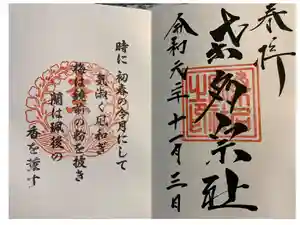 奉拝
多宗社
令和元年十一月三日
時に 初春の令月にして
気淑く風和ぎ
梅は鏡前の粉を披き
蘭は珮後の
香を薫す